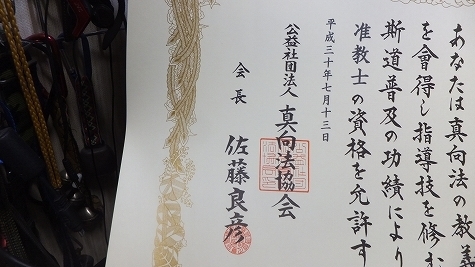 あなたは真向法の教義
を會得し指導技を修む
斯道普及の功績により
准教士の資格を允許す
平成三十年七月十三日
公益社団法人 真向法協会
会長 佐藤良彦